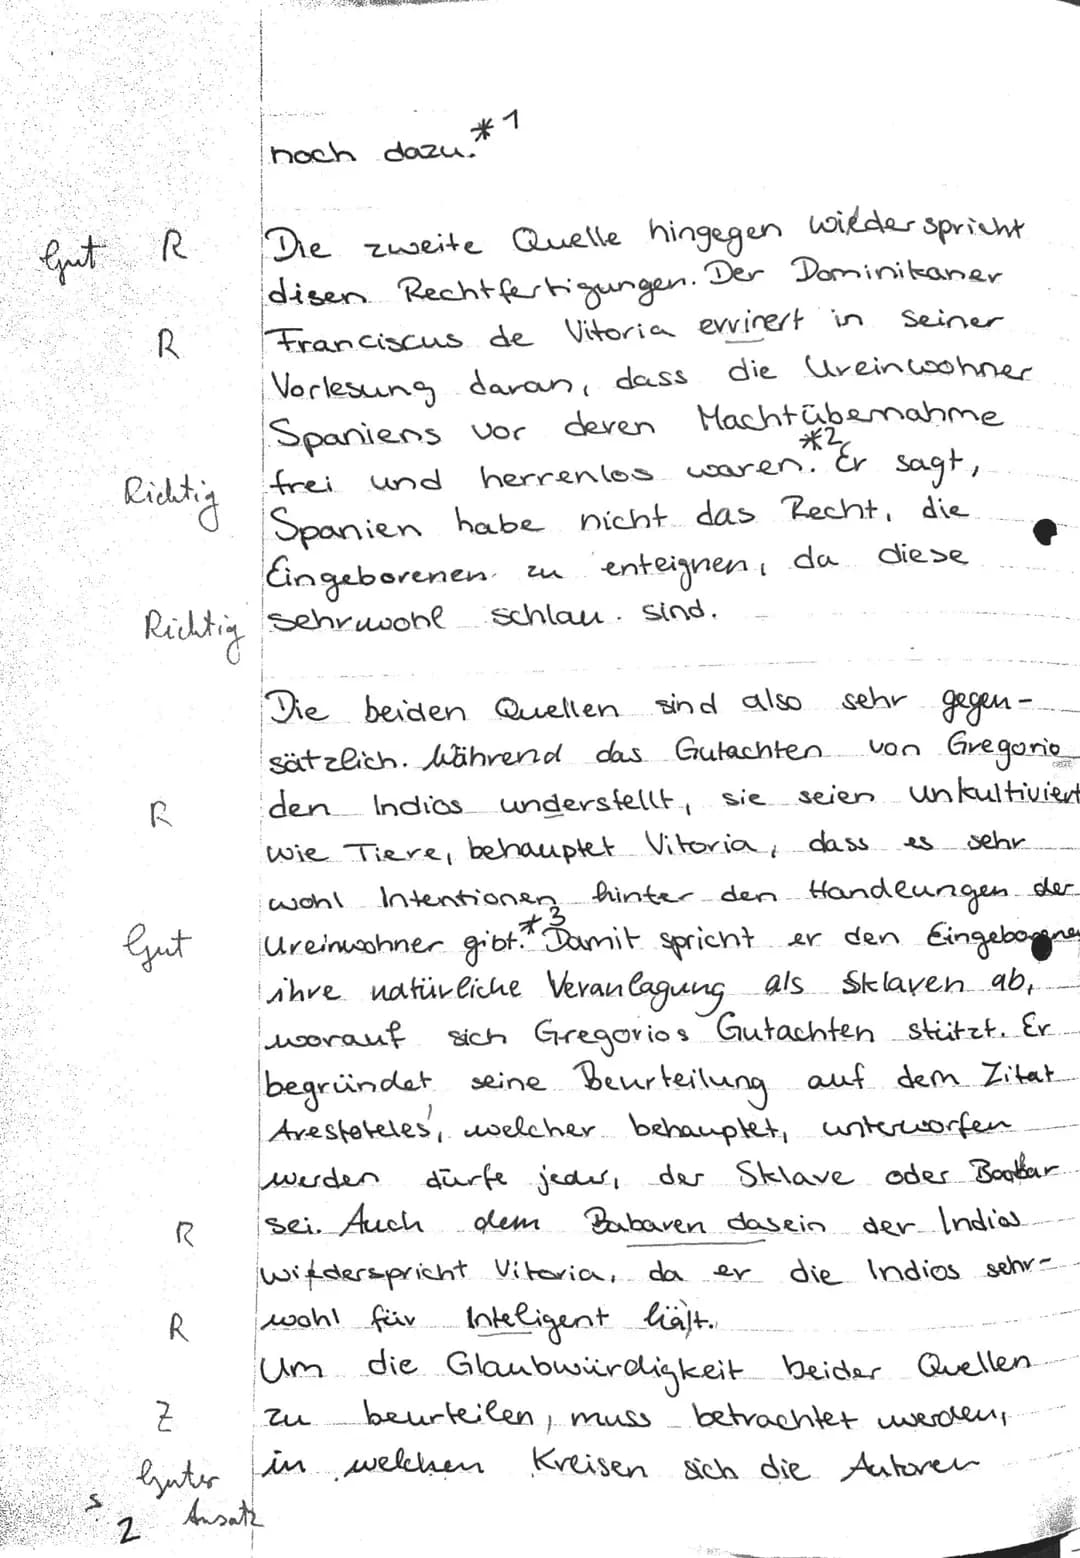 noch dazu.*1
Gut R Die zweite Quelle hingegen wiederspricht
disen Rechtfertigungen. Der Dominikaner
R Franciscus de Vitoria errinert in seiner
Vorlesung daran, dass die Ureinwohner
Spaniens vor deren Machtübernahme
frei und herrenlos waren.*2 Er sagt,
Richtig Spanien habe nicht das Recht, die
Eingeborenen zu enteignen, da diese
Richtig sehrwohl schlau sind.
Die beiden Quellen sind also sehr gegen-
sätzlich. Während das Gutachten von Gregorio
R den Indios understellt, sie seien unkultiviert
wie Tiere, behauptet Vitoria, dass es sehr
wohl Intentionen hinter den Handlungen der
Gut Ureinwohner gibt.*3 Damit spricht er den Eingeborenen
ihre natürliche Veranlagung als Sklaven ab,
worauf sich Gregorios Gutachten stützt. Er
begründet seine Beurteilung auf dem Zitat
Arestoteles', welcher behauptet, unterworfen
werden dürfe jeder, der Sklave oder Barbar
R sei. Auch dem Babaren dasein der Indios
wiederspricht Vitoria, da er die Indios sehr-
R wohl für Inteligent hält.
Um die Glaubwürdigkeit beider Quellen
Z zu beurteilen, muss betrachtet werden,
Guter in welchen Kreisen sich die Autoren
Ansatz
S. 2